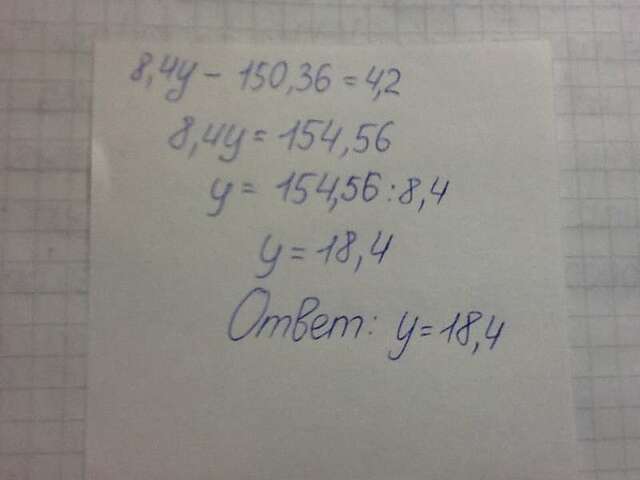 8,4y - 150,36 = 4,2
8,4y = 154,56
y = 154,56 : 8,4
y = 18,4
Ответ: y = 18,4